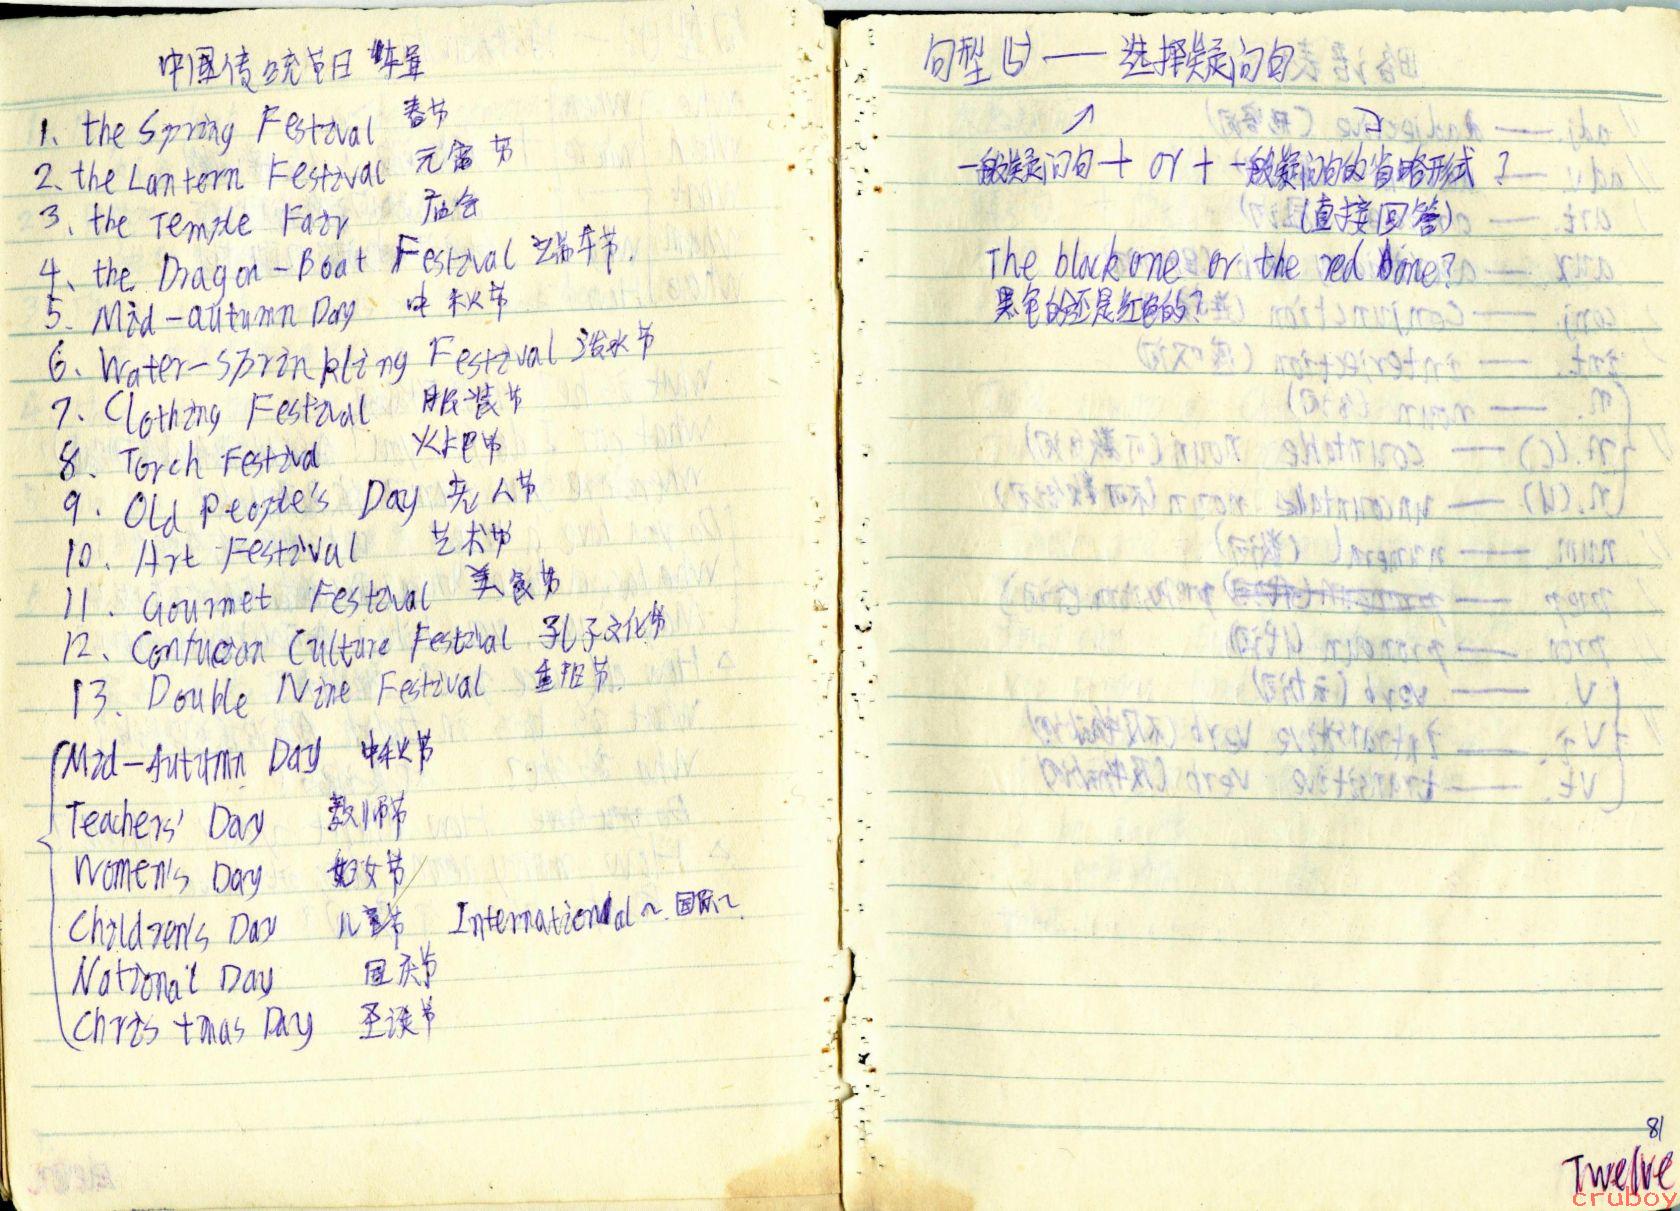 中国传统节日 专辑
1. the Spring Festival 春节
2. the Lantern Festival 元宵节
3. the Temple Fair 庙会
4. the Dragon-Boat Festival 端午节.
5. Mid-autumn Day 中秋节
6. Water-Sprinkling Festival 泼水节
7. Clothing Festival 服装节
8. Torch Festival 火把节
9. Old People's Day 老人节
10. Art Festival 艺术节
11. Gourmet Festival 美食节
12. Confucian Culture Festival 孔子文化节
13. Double Nine Festival 重阳节.
Mid-Autumn Day 中秋节
Teachers' Day 教师节
Women's Day 妇女节
Children's Day 儿童节 International~ 国际~
National Day 国庆节
Christmas Day 圣诞节
句型 — 选择疑问句
一般疑问句 + or + 一般疑问句的省略形式?
(直接回答)
The black one or the red one?
黑色的还是红色的?
81
Twelve
cruboy